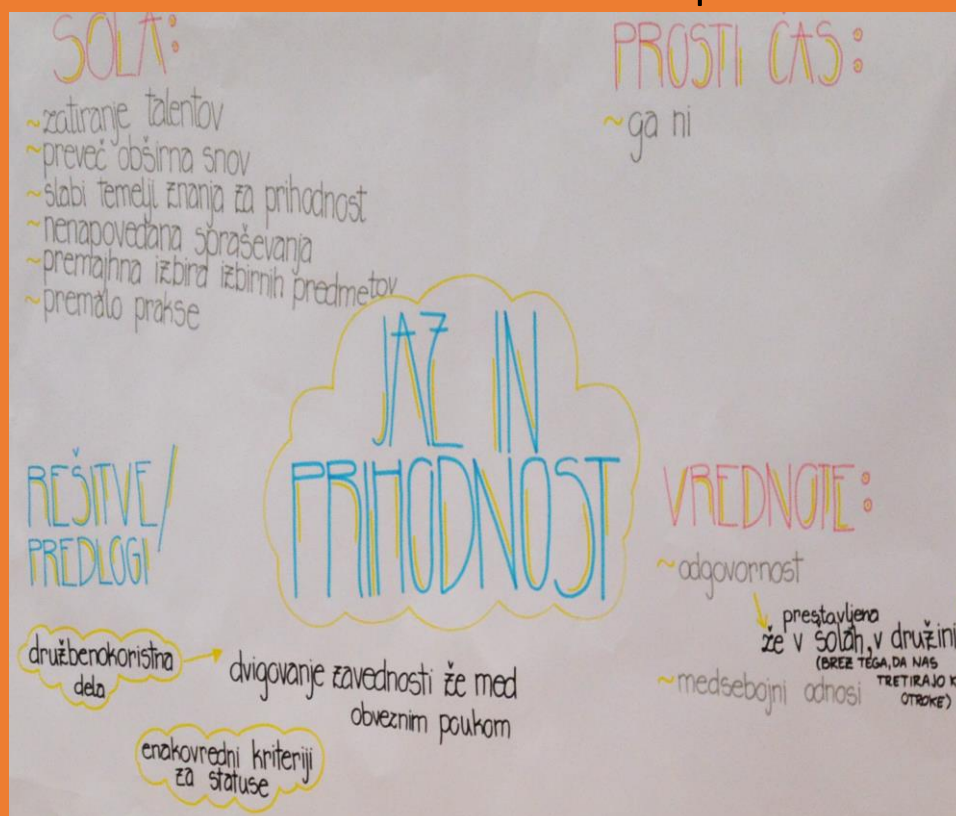 ŠOLA:
~zatiranje talentov
~preveč obširna snov
~slabi temelji znanja za prihodnost
~nenapovedana spraševanja
~premajhna izbira izbirnih predmetov
~premalo prakse
PROSTI ČAS:
~ga ni
JAZ IN
PRIHODNOST
REŠITVE/
PREDLOGI
družbenokoristna
dela
dvigovanje zavednosti že med
obveznim poukom
enakovredni kriteriji
za statuse
VREDNOTE:
~odgovornost
prestavljena
že v šolah, v družini
(BREZ TEGA, DA NAS
TRETIRAJO K
OTROKE)
~medsebojni odnosi